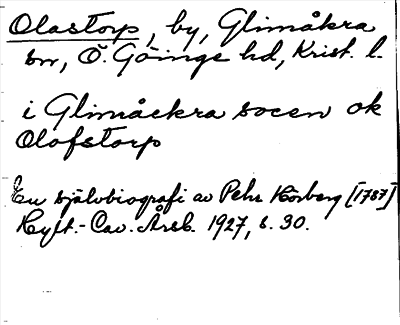 Olastorp, by, Glimåkra
sn, Ö. Göinge hd, Krist. l.
i Glimåckra socen ok
Olofstorp
En självbiografi av Pehr Hörberg [1787]
Hylt.-Cav. Årsb. 1927, s. 30.